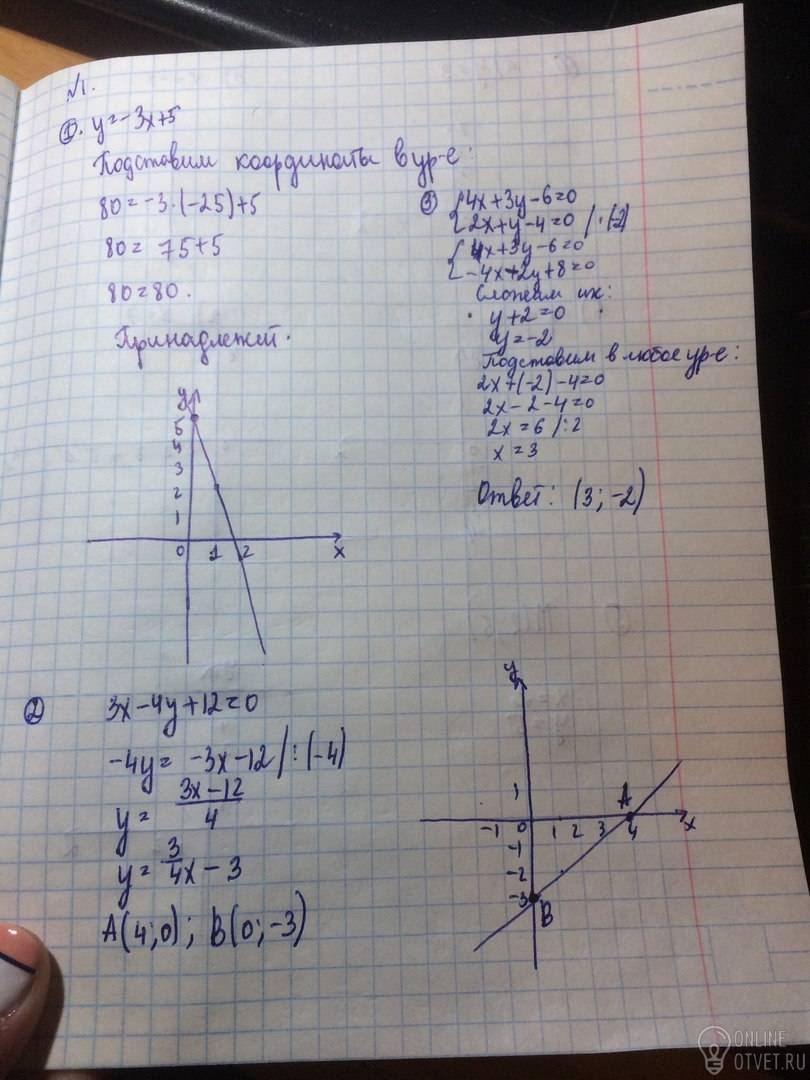 №1.
①. y=-3x+5
Подставим координаты в ур-е:
80=-3·(-25)+5
80= 75+5
80=80.
Принадлежит.
y
5
4
3
2
1
0 1 2 x
③ {4x+3y-6=0
{2x+y-4=0 /·(-2)
{4x+3y-6=0
{-4x+2y+8=0
Сложим их:
y+2=0
y=-2
Подставим в любое ур-е:
2x+(-2)-4=0
2x-2-4=0
2x=6 /:2
x=3
Ответ: (3;-2)
② 3x-4y+12=0
-4y= -3x-12/:(-4)
y= 3x-12/4
y= 3/4x-3
A(4;0); B(0;-3)
y
1
A
-1 0 1 2 3 4 x
-1
-2
-3
B
ONLINE
OTVET.RU